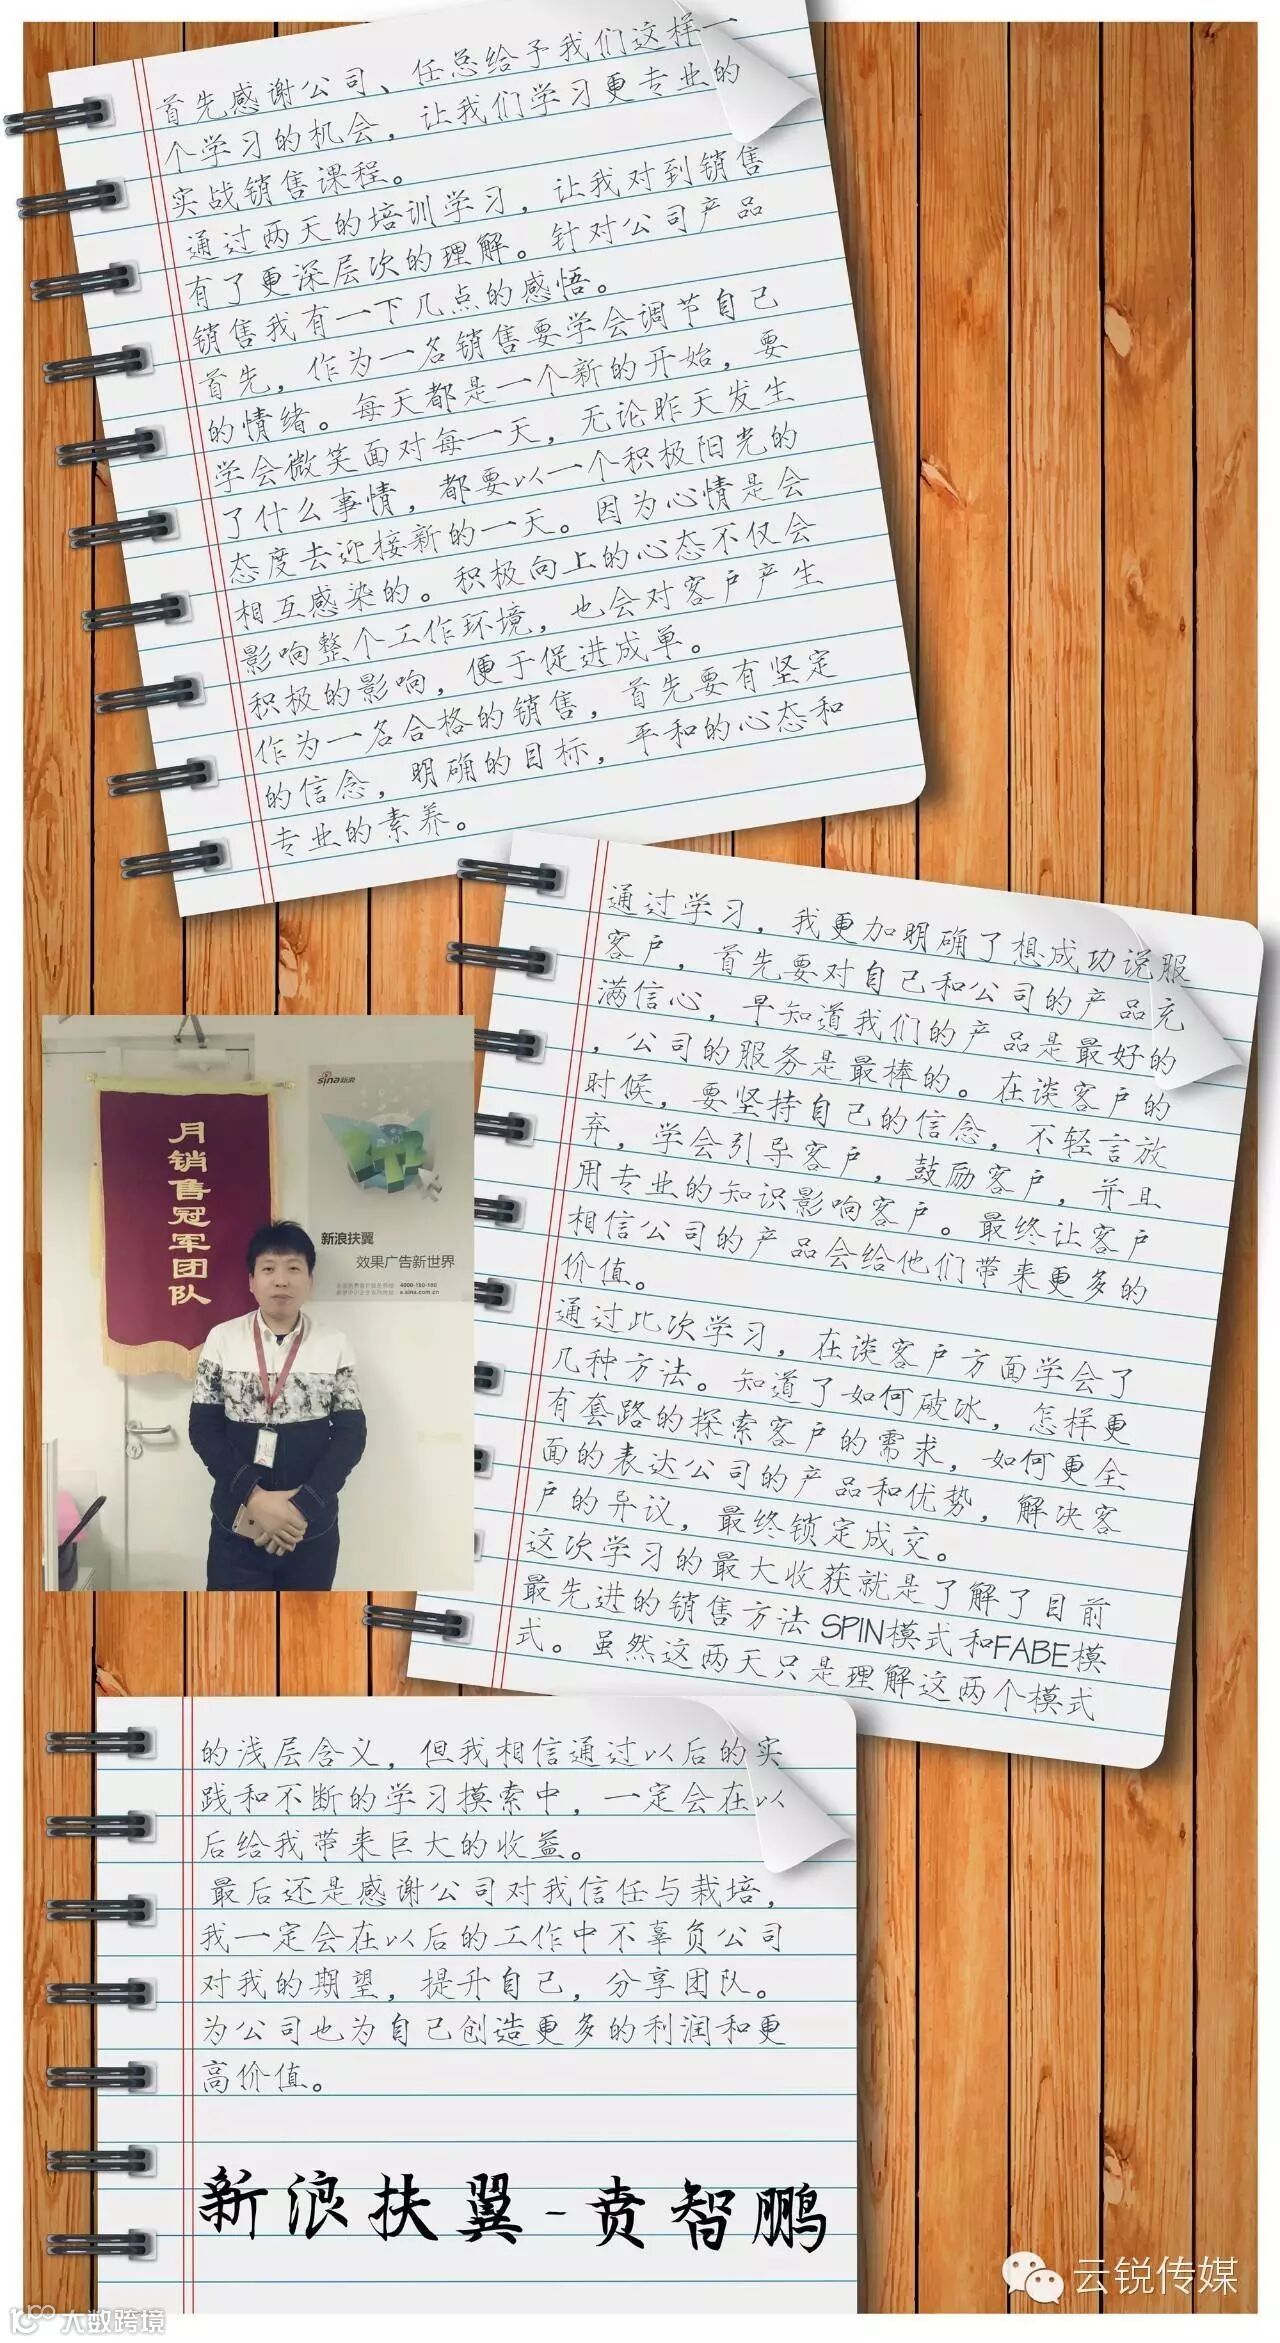 首先感谢公司、任总给予我们这样一
个学习的机会，让我们学习更专业的
实战销售课程。
通过两天的培训学习，让我对到销售
有了更深层次的理解。针对公司产品
销售我有一下几点的感悟。
首先，作为一名销售要学会调节自己
的情绪。每天都是一个新的开始，要
学会微笑面对每一天，无论昨天发生
了什么事情，都要以一个积极阳光的
态度去迎接新的一天。因为心情是会
相互感染的。积极向上的心态不仅会
影响整个工作环境，也会对客户产生
积极的影响，便于促进成单。
作为一名合格的销售，首先要有坚定
的信念，明确的目标，平和的心态和
专业的素养。
通过学习，我更加明确了想成功说服
客户，首先要对自己和公司的产品充
满信心，早知道我们的产品是最好的
，公司的服务是最棒的。在谈客户的
时候，要坚持自己的信念，不轻言放
弃，学会引导客户，鼓励客户，并且
用专业的知识影响客户。最终让客户
相信公司的产品会给他们带来更多的
价值。
通过此次学习，在谈客户方面学会了
几种方法。知道了如何破冰，怎样更
有套路的探索客户的需求，如何更全
面的表达公司的产品和优势，解决客
户的异议，最终锁定成交。
这次学习的最大收获就是了解了目前
最先进的销售方法 SPIN模式和FABE模
式。虽然这两天只是理解这两个模式
sina新浪
月销售冠军团队
新浪扶翼
效果广告新世界
e.sina.com.cn
的浅层含义，但我相信通过以后的实
践和不断的学习摸索中，一定会在以
后给我带来巨大的收益。
最后还是感谢公司对我信任与栽培，
我一定会在以后的工作中不辜负公司
对我的期望，提升自己，分享团队。
为公司也为自己创造更多的利润和更
高价值。
新浪扶翼-贲智鹏
云锐传媒
大数跨境